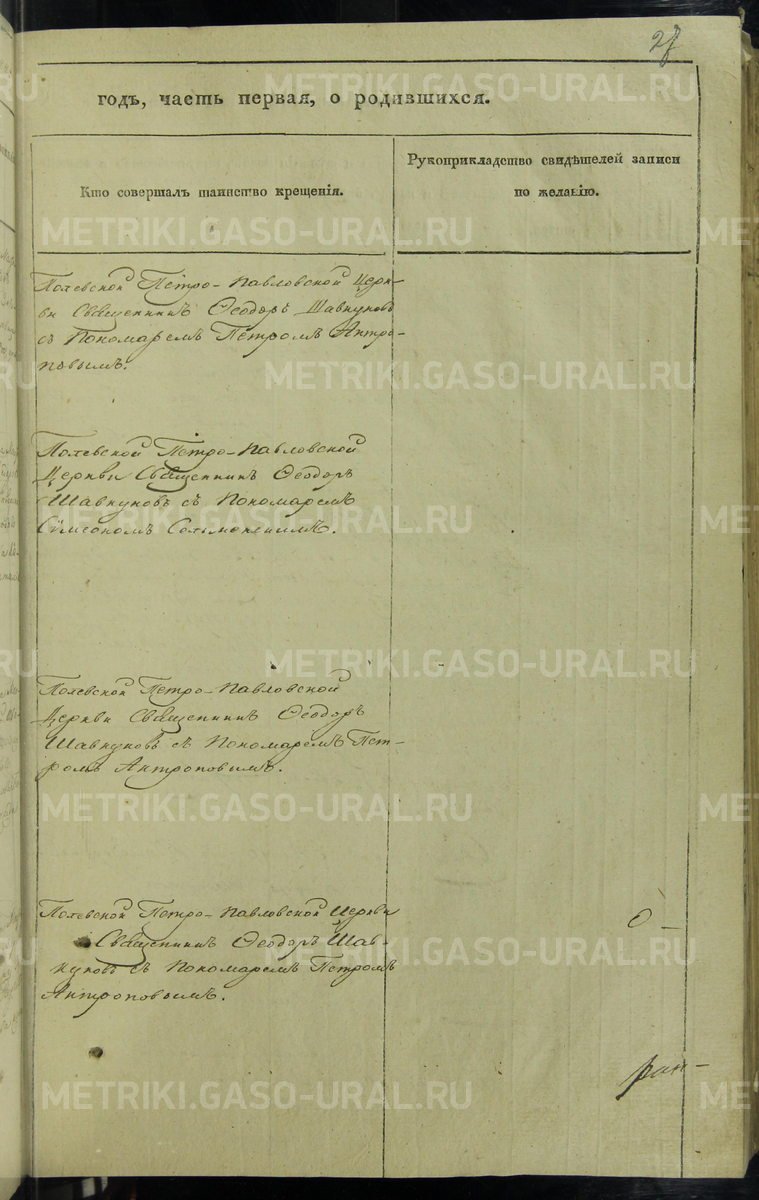 28
годъ, часть первая, о родившихся.
Кто совершалъ таинство крещенія.
Рукоприкладство свидѣтелей записи
по желанію.
Полевской Петро-Павловской Церк-
ви Священникъ Ѳеодоръ Шавкуновъ
съ Пономаремъ Петромъ Антро-
повымъ.
Полевской Петро-Павловской
Церкви Священникъ Ѳеодоръ
Шавкуновъ съ Пономаремъ
Сѵмеономъ
Полевской Петро-Павловской
Церкви Священникъ Ѳеодоръ
Шавкуновъ съ Пономаремъ Пет-
ромъ Антроповымъ.
Полевской Петро-Павловской Церкви
Священникъ Ѳеодоръ Шав-
куновъ съ Пономаремъ Петромъ
Антроповымъ.
METRIKI.GASO-URAL.RU